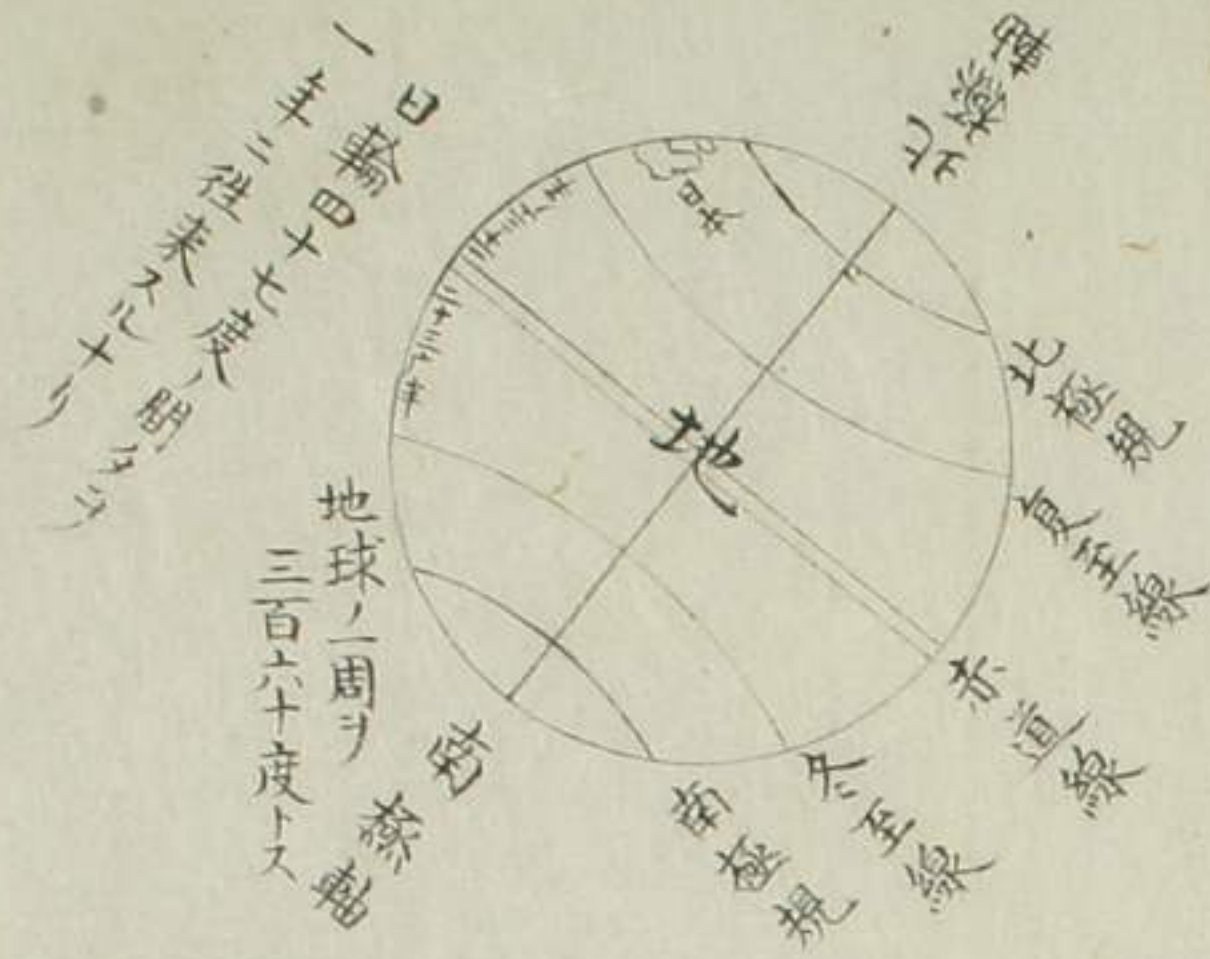 北極軸
北極規
夏至線
赤道線
冬至線
南極規
南極軸
日本
二十三度半
二十三度半
地
日輪四十七度ノ間ヲ
一年ニ往来スルナリ
地球ノ一周ヲ
三百六十度トス